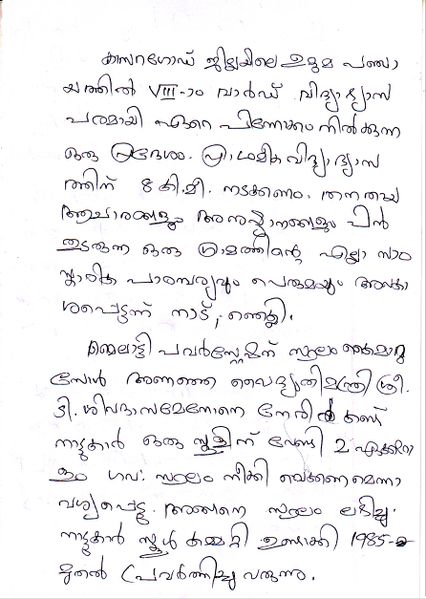 കാസറഗോഡ് ജില്ലയിലെ ഉദുമ പഞ്ചാ
യത്തിൽ VIII-ാം വാർഡ് വിദ്യാഭ്യാസ
പരമായി ഏറെ പിന്നോക്കം നിൽക്കുന്ന
ഒരു പ്രദേശം. പ്രാഥമിക വിദ്യാഭ്യാസ
ത്തിന് 8 കി.മീ. നടക്കണം. തനതായ
ആചാരങ്ങളും അനുഷ്ഠാനങ്ങളും പിൻ
തുടരുന്ന ഒരു ഗ്രാമത്തിന്റെ എല്ലാ സാം
സ്കാരിക പാരമ്പര്യവും പെരുമയും അവകാ
ശപ്പെട്ടത് നാട്,
മൈലാട്ടി പവർസ്റ്റേഷന് സ്ഥലം കൈമാറു
മ്പോൾ അന്നത്തെ വൈദ്യുതിമന്ത്രി ശ്രീ.
ടി. ശിവദാസമേനോനെ നേരിൽ കണ്ട്
നാട്ടുകാർ ഒരു സ്കൂളിന് വേണ്ടി 2 ഏക്കറോ
ളം ഗവ: സ്ഥലം നീക്കി വെക്കണമെന്നാ
വശ്യപ്പെട്ടു. അങ്ങനെ സ്ഥലം ലഭിച്ചു.
നാട്ടുകാർ സ്കൂൾ കമ്മറ്റി ഉണ്ടാക്കി 1985-
മുതൽ പ്രവർത്തിച്ചു വരുന്നു.